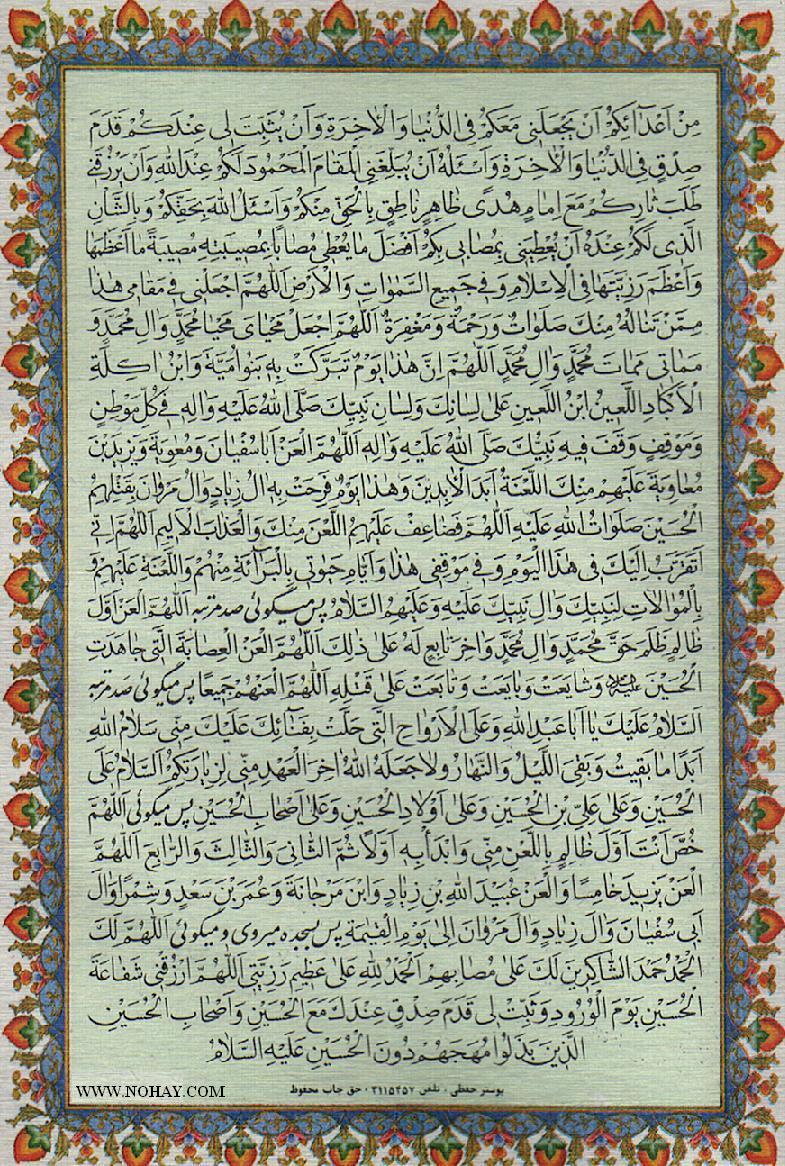 مِنْ اَعْدٰٓائِكُمْ اَنْ يَجْعَلَنى مَعَكُمْ فِى الدُّنْيٰا وَالْاٰخِرَةِ وَاَنْ يُثَبِّتَ لى عِنْدَكُمْ قَدَمَ
صِدْقٍ فِى الدُّنْيٰا وَالْاٰخِرَةِ وَاَسْئَلُهُ اَنْ يُبَلِّغَنِى الْمَقٰامَ الْمَحْمُودَ لَكُمْ عِنْدَ اللهِ وَاَنْ يَرْزُقَنى
طَلَبَ ثٰارِكُمْ مَعَ اِمٰامٍ هُدًى ظٰاهِرٍ نٰاطِقٍ بِالْحَقِّ مِنْكُمْ وَاَسْئَلُ اللهَ بِحَقِّكُمْ وَبِالشَّاْنِ
الَّذى لَكُمْ عِنْدَهُ اَنْ يُعْطِيَنى بِمُصٰابى بِكُمْ اَفْضَلَ مٰا يُعْطى مُصٰابًا بِمُصيبَتِهِ مُصيبَةً مٰا اَعْظَمَهٰا
وَاَعْظَمَ رَزِيَّتَهٰا فِى الْاِسْلٰامِ وَفى جَميعِ السَّمٰوٰاتِ وَالْاَرْضِ اَللّٰهُمَّ اجْعَلْنى فى مَقٰامى هٰذٰا
مِمَّنْ تَنٰالُهُ مِنْكَ صَلَوٰاتٌ وَرَحْمَةٌ وَمَغْفِرَةٌ اَللّٰهُمَّ اجْعَلْ مَحْيٰاىَ مَحْيٰا مُحَمَّدٍ وَاٰلِ مُحَمَّدٍ وَ
مَمٰاتى مَمٰاتَ مُحَمَّدٍ وَاٰلِ مُحَمَّدٍ اَللّٰهُمَّ اِنَّ هٰذٰا يَوْمٌ تَبَرَّكَتْ بِهِ بَنُو اُمَيَّةَ وَابْنُ اٰكِلَةِ
الْاَكْبٰادِ اللَّعينُ ابْنُ اللَّعينِ عَلىٰ لِسٰانِكَ وَلِسٰانِ نَبِيِّكَ صَلَّى اللهُ عَلَيْهِ وَاٰلِهِ فى كُلِّ مَوْطِنٍ
وَمَوْقِفٍ وَقَفَ فيهِ نَبِيُّكَ صَلَّى اللهُ عَلَيْهِ وَاٰلِهِ اَللّٰهُمَّ الْعَنْ اَبٰا سُفْيٰانَ وَمُعٰوِيَةَ وَيَزيدَ بْنَ
مُعٰاوِيَةَ عَلَيْهِمْ مِنْكَ اللَّعْنَةُ اَبَدَ الْاٰبِدينَ وَهٰذٰا يَوْمٌ فَرِحَتْ بِهِ اٰلُ زِيٰادٍ وَاٰلُ مَرْوٰانَ بِقَتْلِهِمُ
الْحُسَيْنَ صَلَوٰاتُ اللهِ عَلَيْهِ اَللّٰهُمَّ فَضٰاعِفْ عَلَيْهِمُ اللَّعْنَ مِنْكَ وَالْعَذٰابَ الْاَليمَ اَللّٰهُمَّ اِنّى
اَتَقَرَّبُ اِلَيْكَ فى هٰذَا الْيَوْمِ وَفى مَوْقِفى هٰذٰا وَاَيّٰامِ حَيٰوتى بِالْبَرٰٓائَةِ مِنْهُمْ وَاللَّعْنَةِ عَلَيْهِمْ وَ
بِالْمُوٰالٰاتِ لِنَبِيِّكَ وَاٰلِ نَبِيِّكَ عَلَيْهِ وَعَلَيْهِمُ السَّلٰامُ پس ميگوئى صد مرتبه اَللّٰهُمَّ الْعَنْ اَوَّلَ
ظٰالِمٍ ظَلَمَ حَقَّ مُحَمَّدٍ وَاٰلِ مُحَمَّدٍ وَاٰخِرَ تٰابِعٍ لَهُ عَلىٰ ذٰلِكَ اَللّٰهُمَّ الْعَنِ الْعِصٰابَةَ الَّتى جٰاهَدَتِ
الْحُسَيْنَ عليه السلام وَشٰايَعَتْ وَبٰايَعَتْ وَتٰابَعَتْ عَلىٰ قَتْلِهِ اَللّٰهُمَّ الْعَنْهُمْ جَميعًا پس ميگوئى صد مرتبه
اَلسَّلٰامُ عَلَيْكَ يٰا اَبٰا عَبْدِ اللهِ وَعَلَى الْاَرْوٰاحِ الَّتى حَلَّتْ بِفِنٰٓائِكَ عَلَيْكَ مِنّى سَلٰامُ اللهِ
اَبَدًا مٰا بَقيتُ وَبَقِىَ اللَّيْلُ وَالنَّهٰارُ وَلٰا جَعَلَهُ اللهُ اٰخِرَ الْعَهْدِ مِنّى لِزِيٰارَتِكُمْ اَلسَّلٰامُ عَلَى
الْحُسَيْنِ وَعَلىٰ عَلِىِّ بْنِ الْحُسَيْنِ وَعَلىٰ اَوْلٰادِ الْحُسَيْنِ وَعَلىٰ اَصْحٰابِ الْحُسَيْنِ پس ميگوئى اَللّٰهُمَّ
خُصَّ اَنْتَ اَوَّلَ ظٰالِمٍ بِاللَّعْنِ مِنّى وَابْدَأْ بِهِ اَوَّلًا ثُمَّ الثّٰانِىَ وَالثّٰالِثَ وَالرّٰابِعَ اَللّٰهُمَّ
الْعَنْ يَزيدَ خٰامِسًا وَالْعَنْ عُبَيْدَ اللهِ بْنِ زِيٰادٍ وَابْنَ مَرْجٰانَةَ وَعُمَرَ بْنَ سَعْدٍ وَشِمْرًا وَاٰلَ
اَبى سُفْيٰانَ وَاٰلَ زِيٰادٍ وَاٰلَ مَرْوٰانَ اِلىٰ يَوْمِ الْقِيٰمَةِ پس بسجده ميروى و ميگوئى اَللّٰهُمَّ لَكَ
الْحَمْدُ حَمْدَ الشّٰاكِرينَ لَكَ عَلىٰ مُصٰابِهِمْ اَلْحَمْدُ لِلّٰهِ عَلىٰ عَظيمِ رَزِيَّتى اَللّٰهُمَّ ارْزُقْنى شَفٰاعَةَ
الْحُسَيْنِ يَوْمَ الْوُرُودِ وَثَبِّتْ لى قَدَمَ صِدْقٍ عِنْدَكَ مَعَ الْحُسَيْنِ وَاَصْحٰابِ الْحُسَيْنِ
الَّذينَ بَذَلُوا مُهَجَهُمْ دُونَ الْحُسَيْنِ عَلَيْهِ السَّلٰامُ
WWW.NOHAY.COM
پوستر حفظى ، تلفن ٣١١٥٣٥٢ ، حق چاپ محفوظ